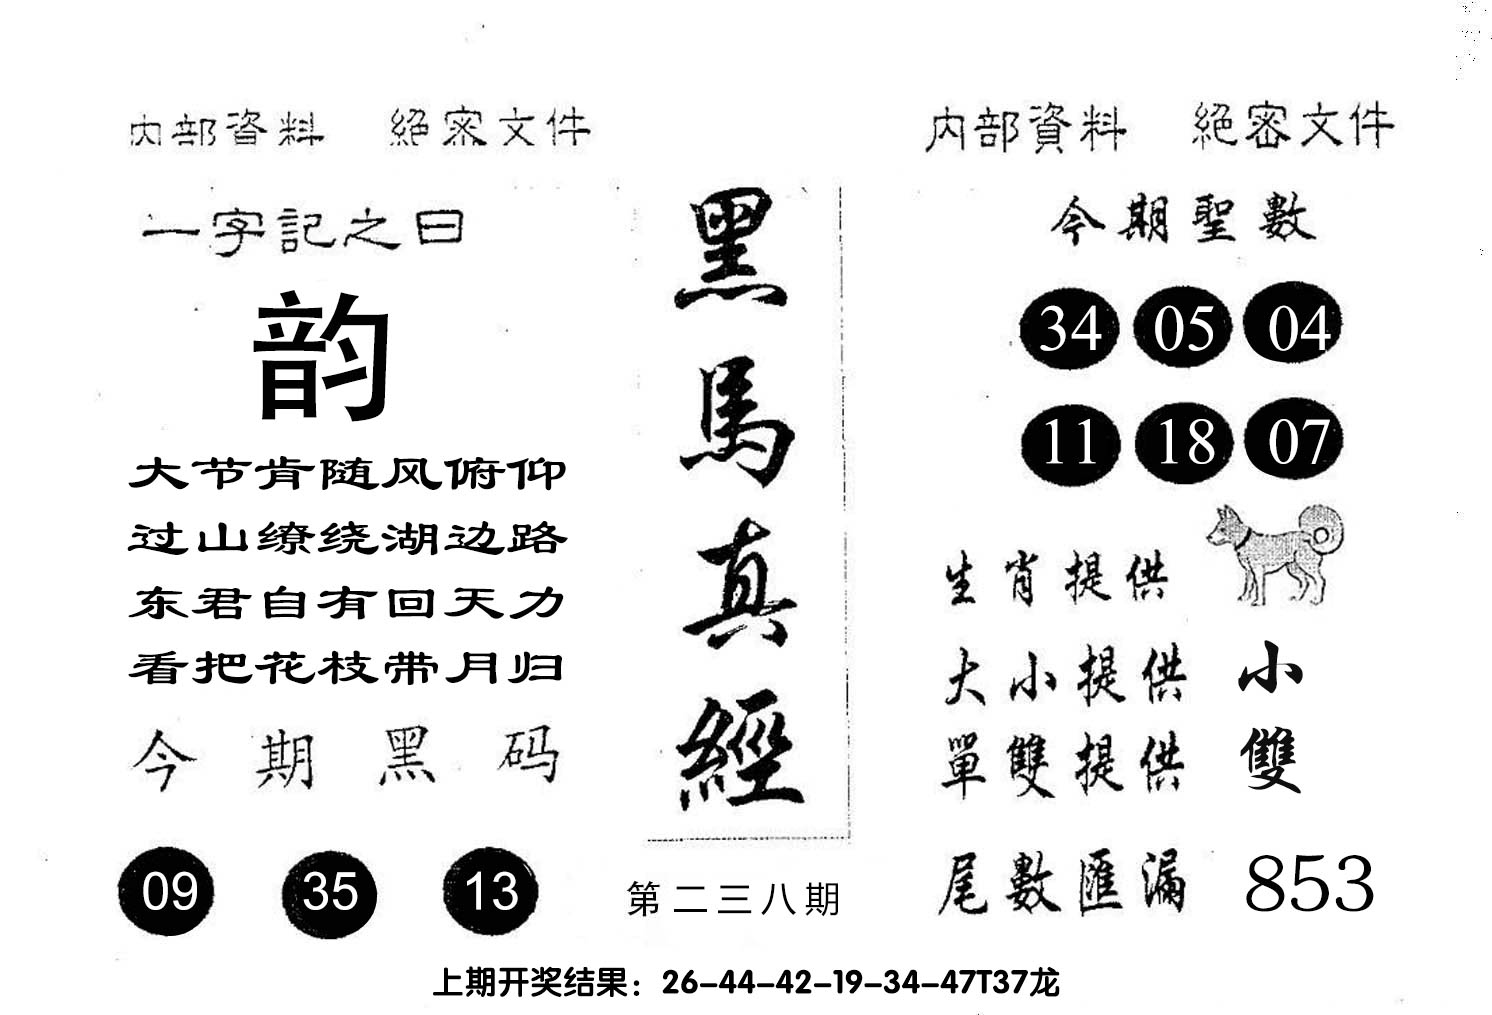 内部資料 絕密文件
一字記之曰
韵
大节肯随风俯仰
过山缭绕湖边路
东君自有回天力
看把花枝带月归
今期黑码
09 35 13
黑馬真經
第二三八期
内部資料 絕密文件
今期聖數
34 05 04
11 18 07
生肖提供
大小提供 小
單雙提供 雙
尾數匯漏 853
上期开奖结果：26-44-42-19-34-47T37龙